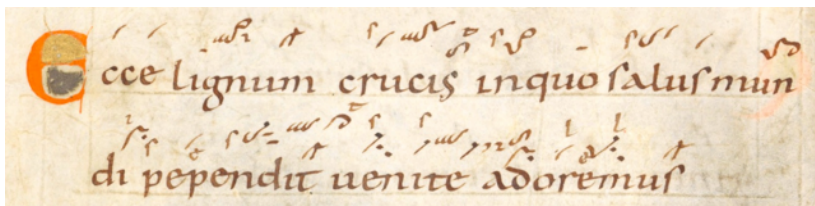 Ecce lignum crucis in quo salus mun
di pependit uenite adoremus